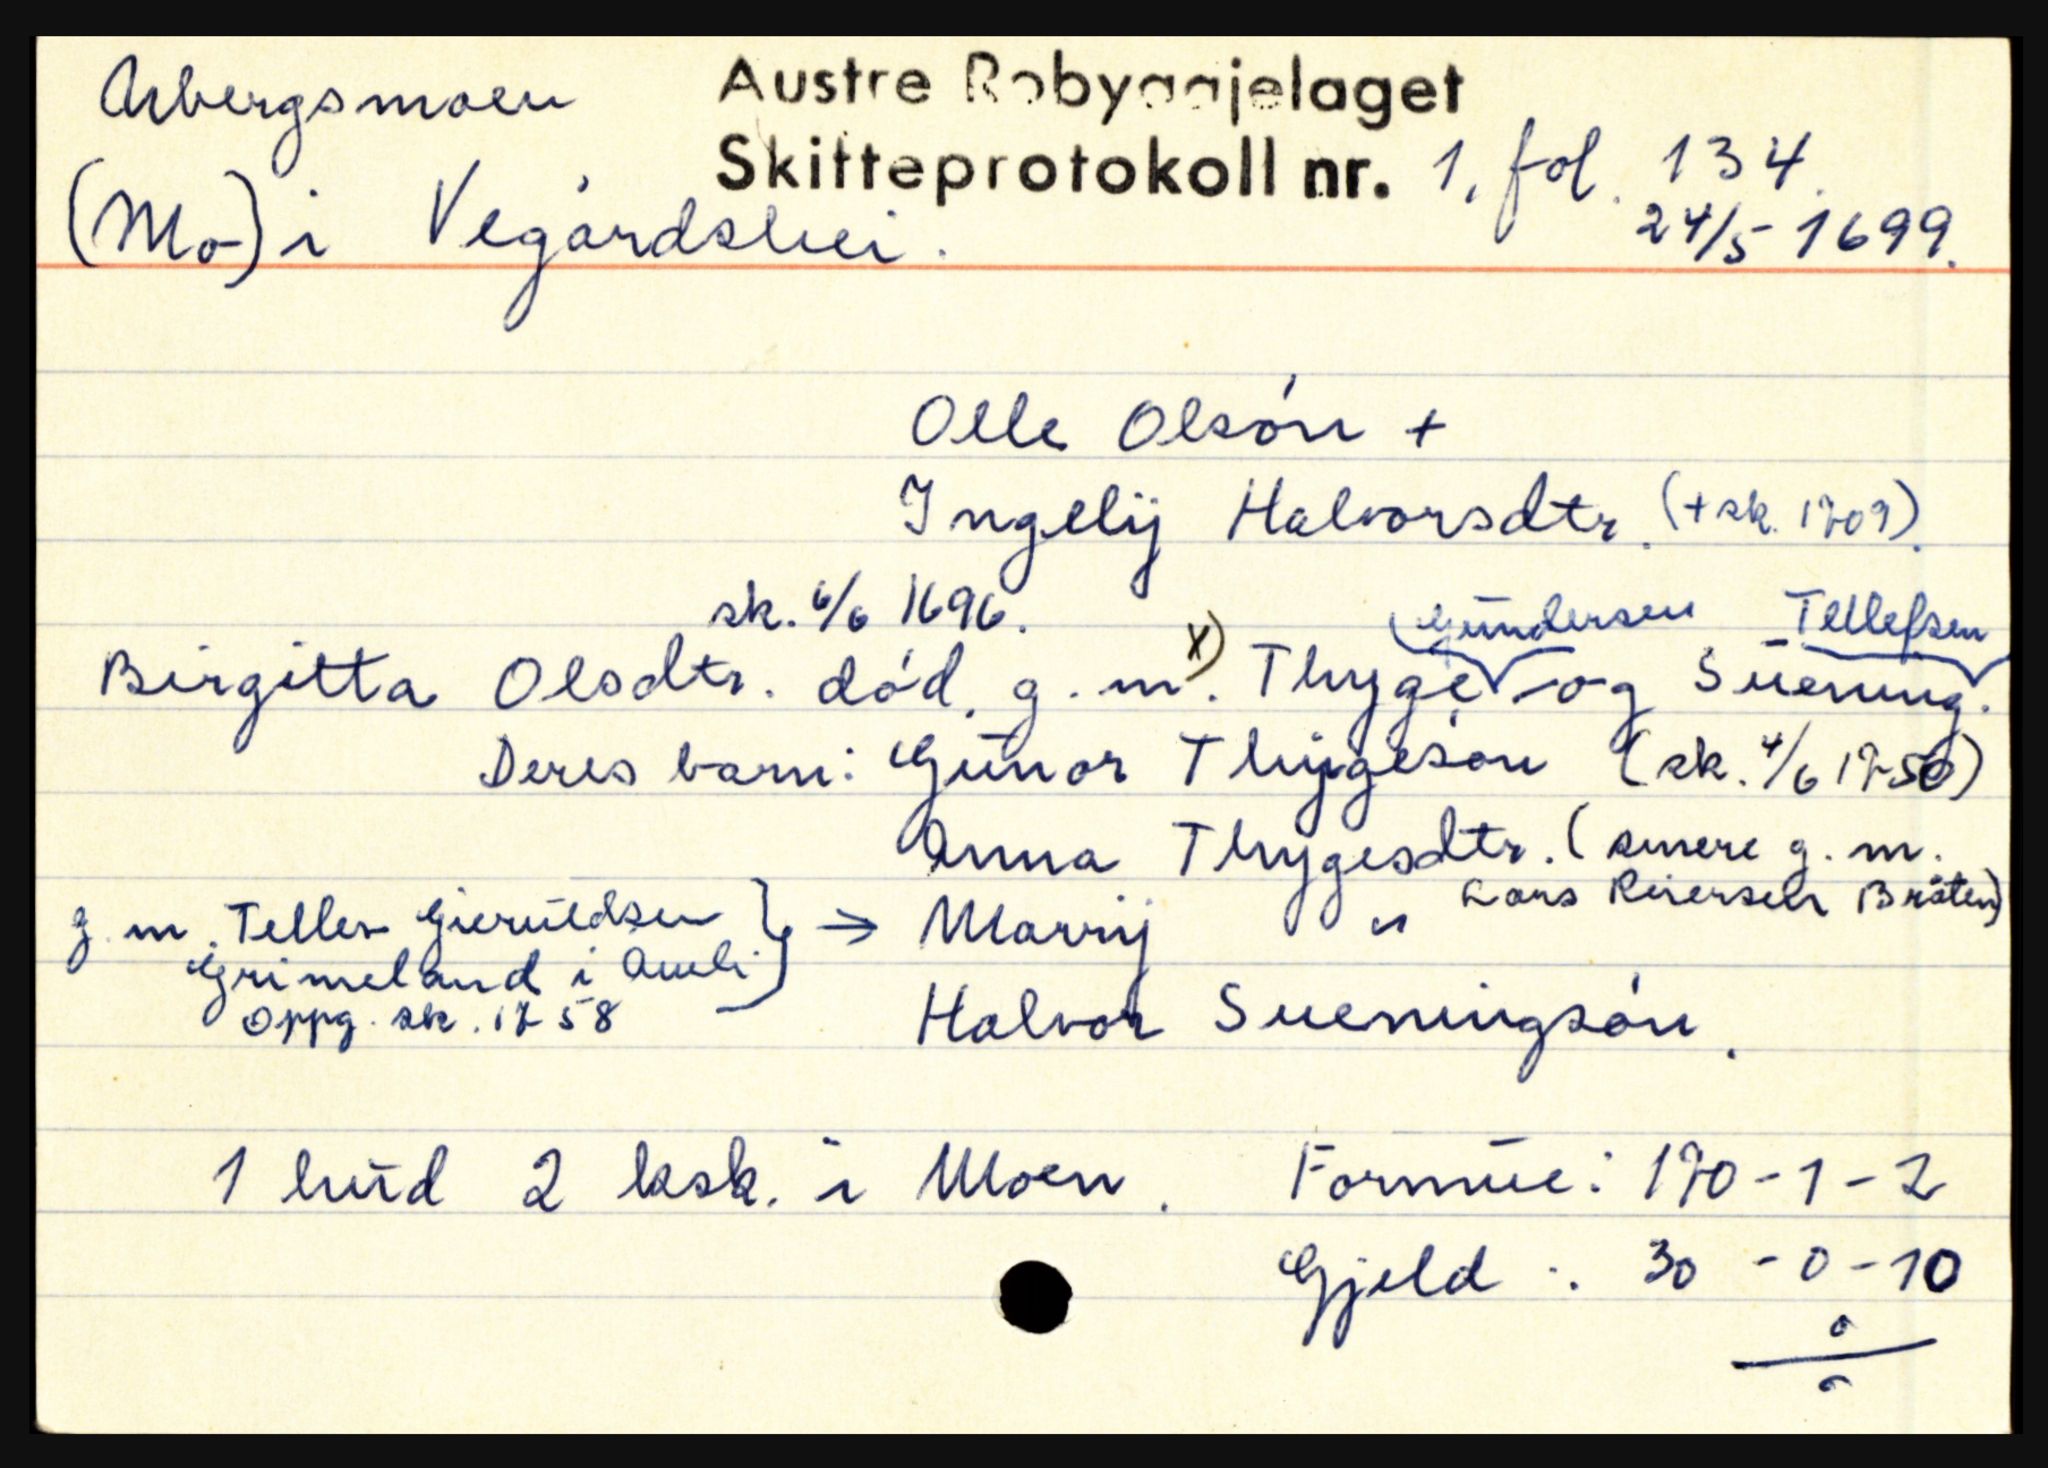 Arbergsmoen
Austre Robyggjelaget
Skifteprotokoll nr. 1, fol. 134.
(Mo) i Vegårdshei.
24/5 1699.
Olle Olsón +
Ingelij Halvorsdtr. (+ sk. 1709).
sk. 6/6 1696.
(Gundersen Tellefsen
Birgitta Olsdtr. död. g. m. x) Thyge og Suening.
Deres barn: Gunor Thygesón (sk. 4/6 1750)
Anna Thygesdtr. (senere g. m.
Lars Reiersen Bråten)
g. m. Tellev Gieruldsen } → Marrij "
Grimeland i Amli
Oppg. sk. 1758
Halvor Sueningsón.
1 hud 2 ksk. i Moen. Formue: 170 - 1 - 2
Gjeld : 30 - 0 - 10